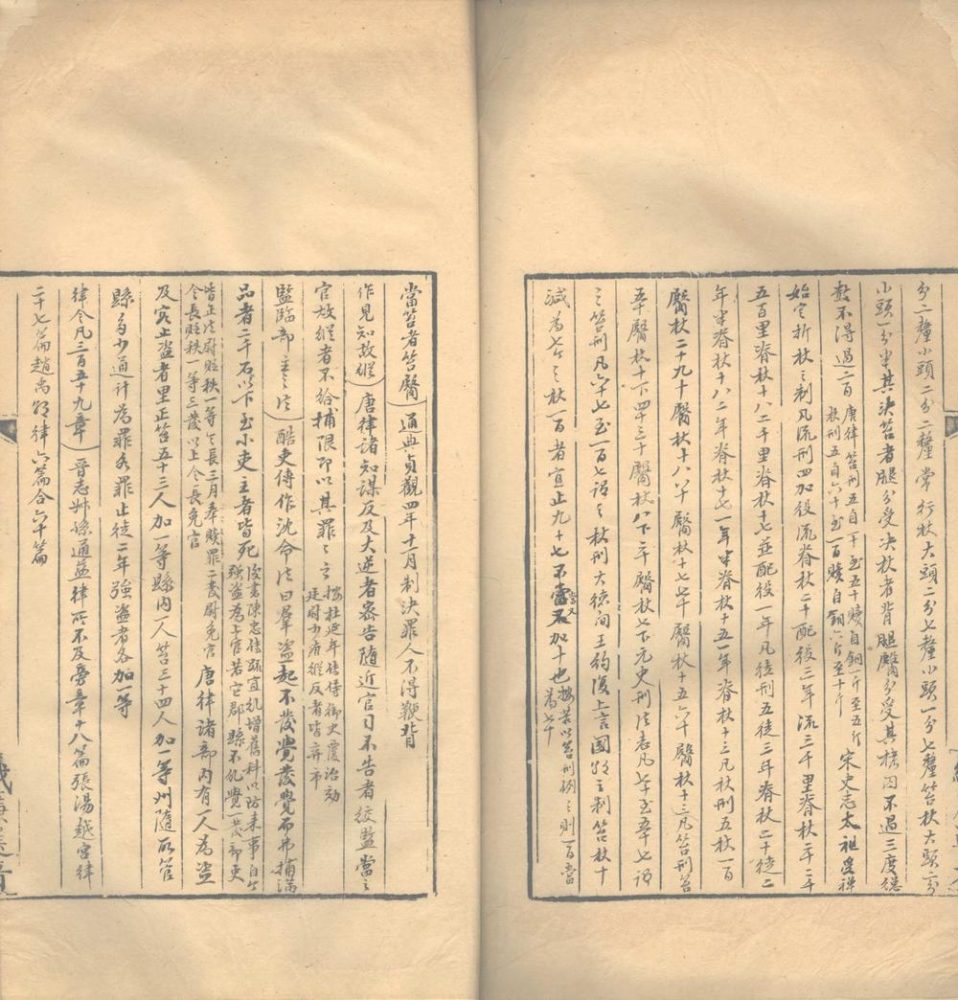 分二釐小頭二分二釐常行杖大頭二分七釐小頭一分七釐笞杖大頭二分
小頭一分半其決笞者腿分受決杖者背腿臀分受其拷囚不過三度總
數不得過二百唐律笞刑五自一十至五十贖自銅一斤至五斤杖刑五自六十至一百贖自銅六斤至十斤宋史志太祖受禪
始定折杖之制凡流刑四加役流脊杖二十配役三年流三千里脊杖二十二千
五百里脊杖十八二千里脊杖十七並配役一年凡徒刑五徒三年脊杖二十徒二
年半脊杖十八二年脊杖十七一年半脊杖十五一年脊杖十三凡杖刑五杖一百
臀杖二十九十臀杖十八八十臀杖十七七十臀杖十五六十臀杖十三凡笞刑笞
五十臀杖十下四十三十臀杖八下二十臀杖七下元史刑法志凡七下至五十七謂
之笞刑凡六十七至一百七謂之杖刑大德間王約復上言國朝之制笞杖十
減為七今之杖一百者宜止九十七不當又加十也按若以笞刑例之則一百當為七十
當笞者笞臀通典貞觀四年十一月制決罪人不得鞭背
作見知故縱唐律諸知謀反及大逆者密告隨近官司不告者絞監當之
官故縱者不給捕限即以其罪罪之按杜延年傳侍御史覆治劾廷尉少府縱反者皆棄市
監臨部主之法酷吏傳作沈命法曰羣盜起不發覺發覺而弗捕滿
品者二千石以下至小吏主者皆死後書陳忠傳疏宜糺增舊科以防來事自今強盜為上官若它郡縣所糺覺一發部吏
皆正法尉貶秩一等令長三月奉贖罪二發尉免官令長貶秩一等三發以上令長免官唐律諸部內有一人為盜
及容止盜者里正笞五十三人加一等縣內一人笞三十四人加一等州隨所管
縣多少通計為罪各罪止徒二年強盜者各加一等
律令凡三百五十九章晉志叔孫通益律所不及旁章十八篇張湯越宮律
二十七篇趙禹朝律六篇合六十篇